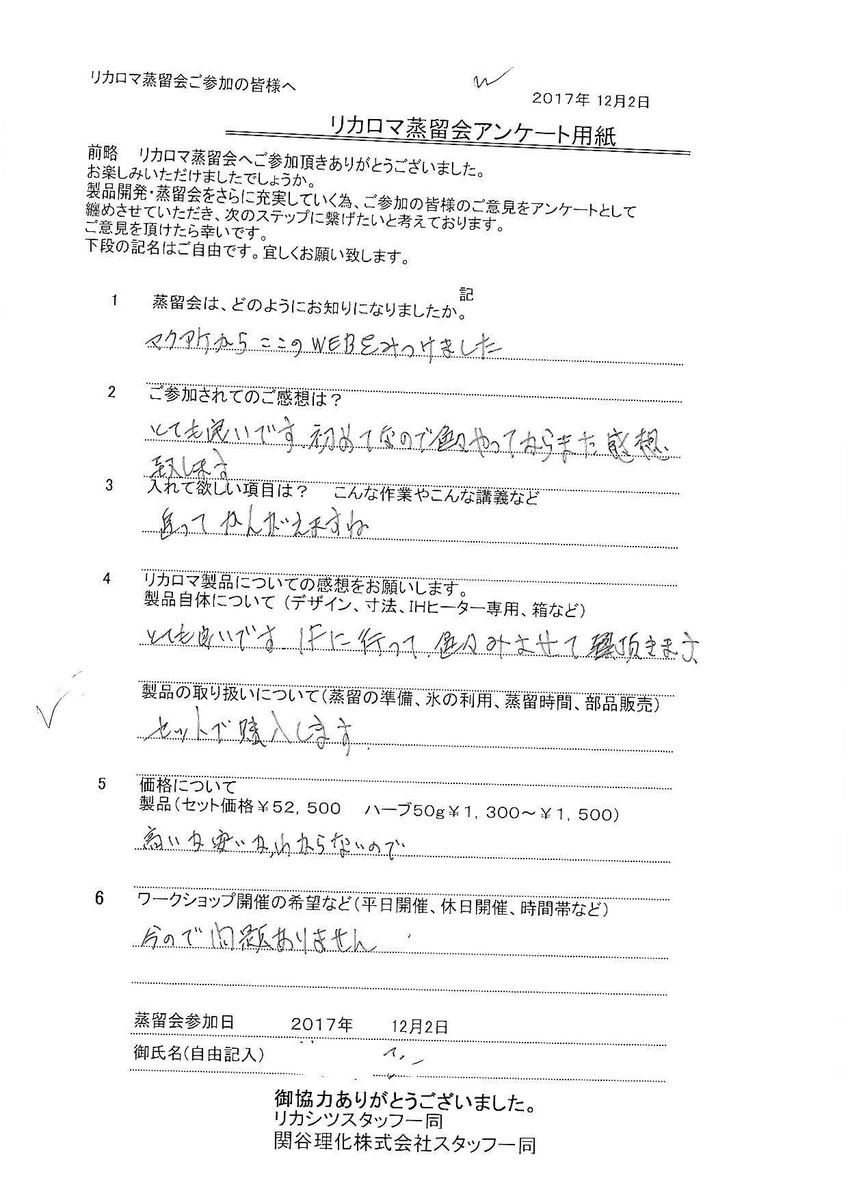 リカロマ蒸留会ご参加の皆様へ
2017年 12月2日
リカロマ蒸留会アンケート用紙
前略 リカロマ蒸留会へご参加頂きありがとうございました。
お楽しみいただけましたでしょうか。
製品開発・蒸留会をさらに充実していく為、ご参加の皆様のご意見をアンケートとして
纏めさせていただき、次のステップに繋げたいと考えております。
ご意見を頂けたら幸いです。
下段の記名はご自由です。宜しくお願い致します。
記
1 蒸留会は、どのようにお知りになりましたか。
マクアケからここのWEBをみつけました
2 ご参加されてのご感想は?
とても良いです、初めてなので色々やってからまた感想
致します
3 入れて欲しい項目は? こんな作業やこんな講義など
4 リカロマ製品についての感想をお願いします。
製品自体について (デザイン、寸法、IHヒーター専用、箱など)
とても良いです。1Fに行って、色々みさせて頂きます
製品の取り扱いについて(蒸留の準備、氷の利用、蒸留時間、部品販売)
セットで購入します。
5 価格について
製品(セット価格¥52,500 ハーブ50g¥1,300~¥1,500)
高いか安いか、わからないので
6 ワークショップ開催の希望など(平日開催、休日開催、時間帯など)
今ので問題ありません
蒸留会参加日 2017年 12月2日
御氏名(自由記入)
御協力ありがとうございました。
リカシツスタッフ一同
関谷理化株式会社スタッフ一同